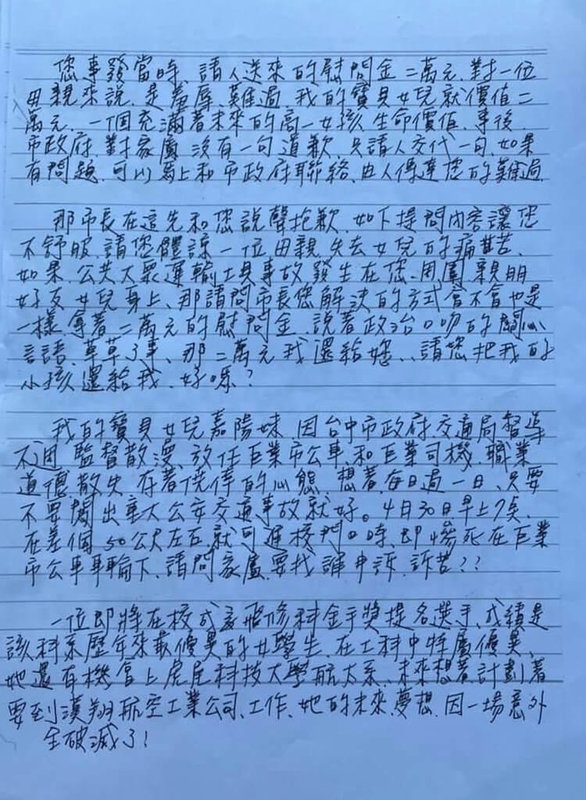 您事發當時、請人送來的慰問金二萬元、對一位
母親來說、是羞辱、難過、我的寶貝女兒就價值二
萬元、一個充滿著未來的高一女孩生命價值、事後
市政府、對家屬沒有一句道歉、只請人交代一句、如果
有問題、可以馬上和市政府聯絡、由人傳達您的難過
那市長在這先和您說聲抱歉、如下提問內容讓您
不舒服、請您體諒一位母親失去女兒的痛苦、
如果公共大眾運輸工具事故發生在您、周圍親朋
好友女兒身上、那請問市長您解決的方式會不會也是
一樣拿著二萬元的慰問金、說著政治口吻的關心
言語、草草了事、那二萬元我還給您、請您把我的
小孩還給我、好嗎?
我的寶貝女兒嘉陽妹、因台中市政府交通局督導
不週、監督散漫、放任巨業市公車和巨業司機、職業
道德散失、存著僥倖的心態、想著、每日過一日、只要
不要鬧出重大公安交通事故就好。4月30日早上7點、
在差個50公尺左右就可進校門口時、即慘死在巨業
市公車車輪下、請問家屬要找誰申訴、訴苦??
一位即將在校成為飛修科金手獎提名選手、成績是
該科系歷年來最優異的女學生、在工科中特屬優異、
她還有機會上虎尾科技大學航太系、未來想著計劃著
要到漢翔航空工業公司、工作、她的未來、夢想、因一場意外
全破滅了!